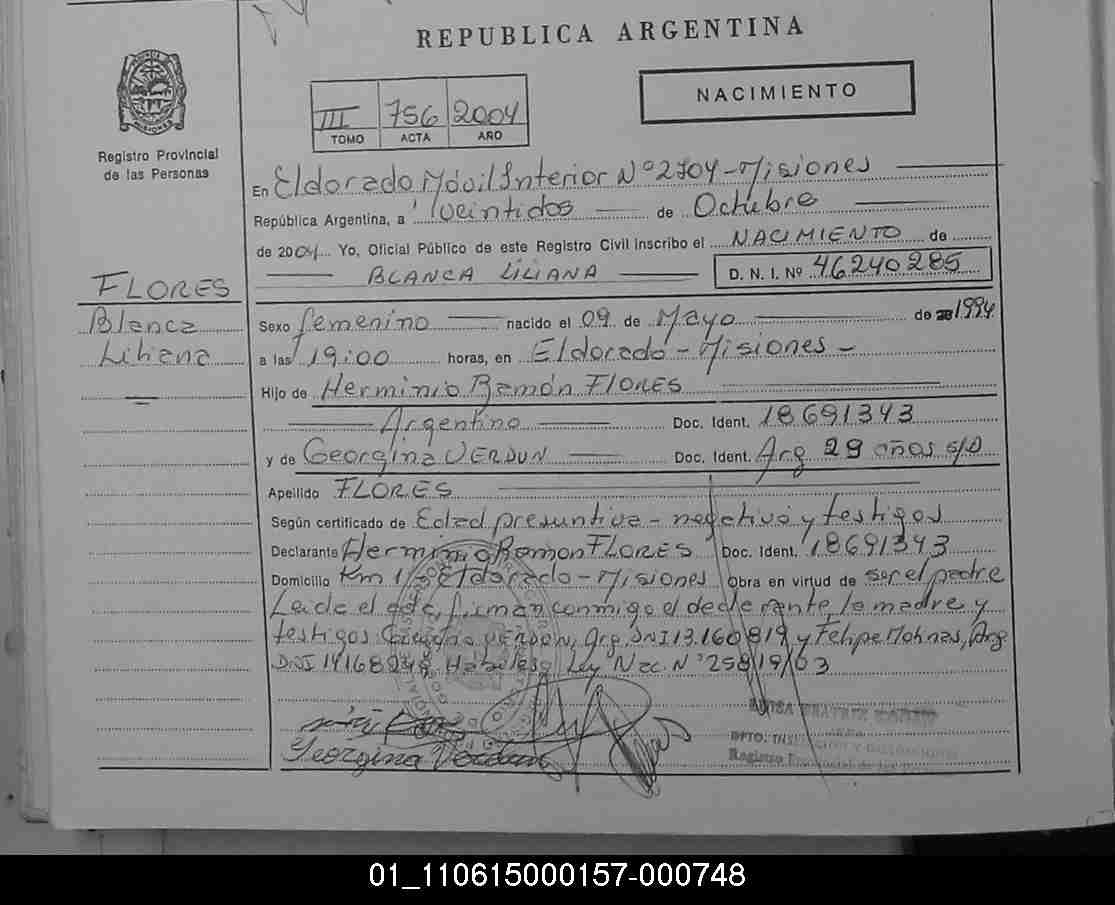 REPUBLICA ARGENTINA
NACIMIENTO
III 756 2004
TOMO ACTA AÑO
Registro Provincial
de las Personas
FLORES
Blanca
Liliana
En Eldorado Móvil Interior Nº 2704 - Misiones
República Argentina, a veintidos de Octubre
de 2004 Yo, Oficial Público de este Registro Civil inscribo el NACIMIENTO de
BLANCA LILIANA D. N. I. Nº 46240285
Sexo femenino nacido el 09 de Mayo de 1994
a las 19:00 horas, en Eldorado - Misiones -
Hijo de Herminio Ramón FLORES
Argentino Doc. Ident. 18691343
y de Georgina VERDUN Doc. Ident. Arg 29 años s/D
Apellido FLORES
Según certificado de Edad presuntiva - negativo y testigos
Declarante Herminio Ramon FLORES Doc. Ident. 18691343
Domicilio Km Eldorado - Misiones Obra en virtud de ser el padre
Leida el acta, firman conmigo el declarante, la madre y
testigos VERDUN, Arg. DNI 13.160819 y Felipe Molinas, Arg
DNI Ley Nac. Nº 25819/03
Georgina Verdun
DPTO.
Registro
01_110615000157-000748